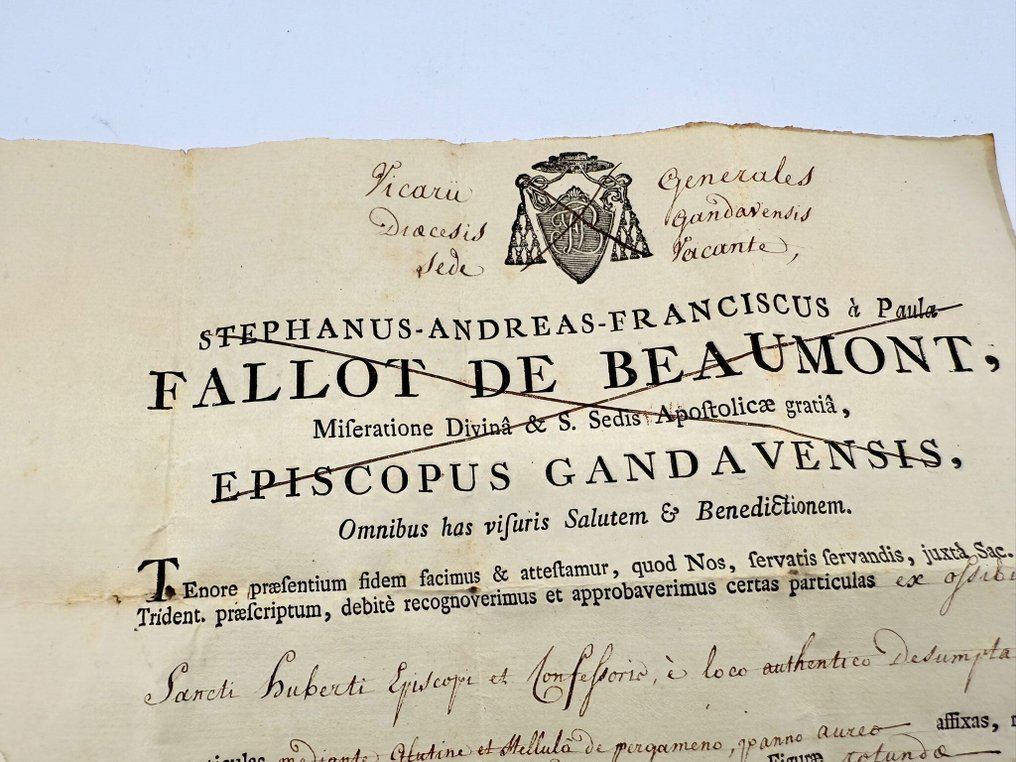 Vicarii Generales
Diœcesis Gandavensis
sede Vacante,
STEPHANUS-ANDREAS-FRANCISCUS à Paula
FALLOT DE BEAUMONT,
Miſeratione Divinâ & S. Sedis Apoſtolicæ gratiâ,
EPISCOPUS GANDAVENSIS,
Omnibus has viſuris Salutem & Benedictionem.
TEnore præſentium fidem facimus & atteſtamur, quod Nos, ſervatis ſervandis, juxtà Sac.
Trident. præſcriptum, debitè recognoverimus et approbaverimus certas particulas ex oſſibu
Sancti Huberti Episcopi et Confeſſoris, è loco authentico Desumpta
mediante Glutine et Stellulà de pergameno, panno aureo affixas,
Figuræ rotundæ